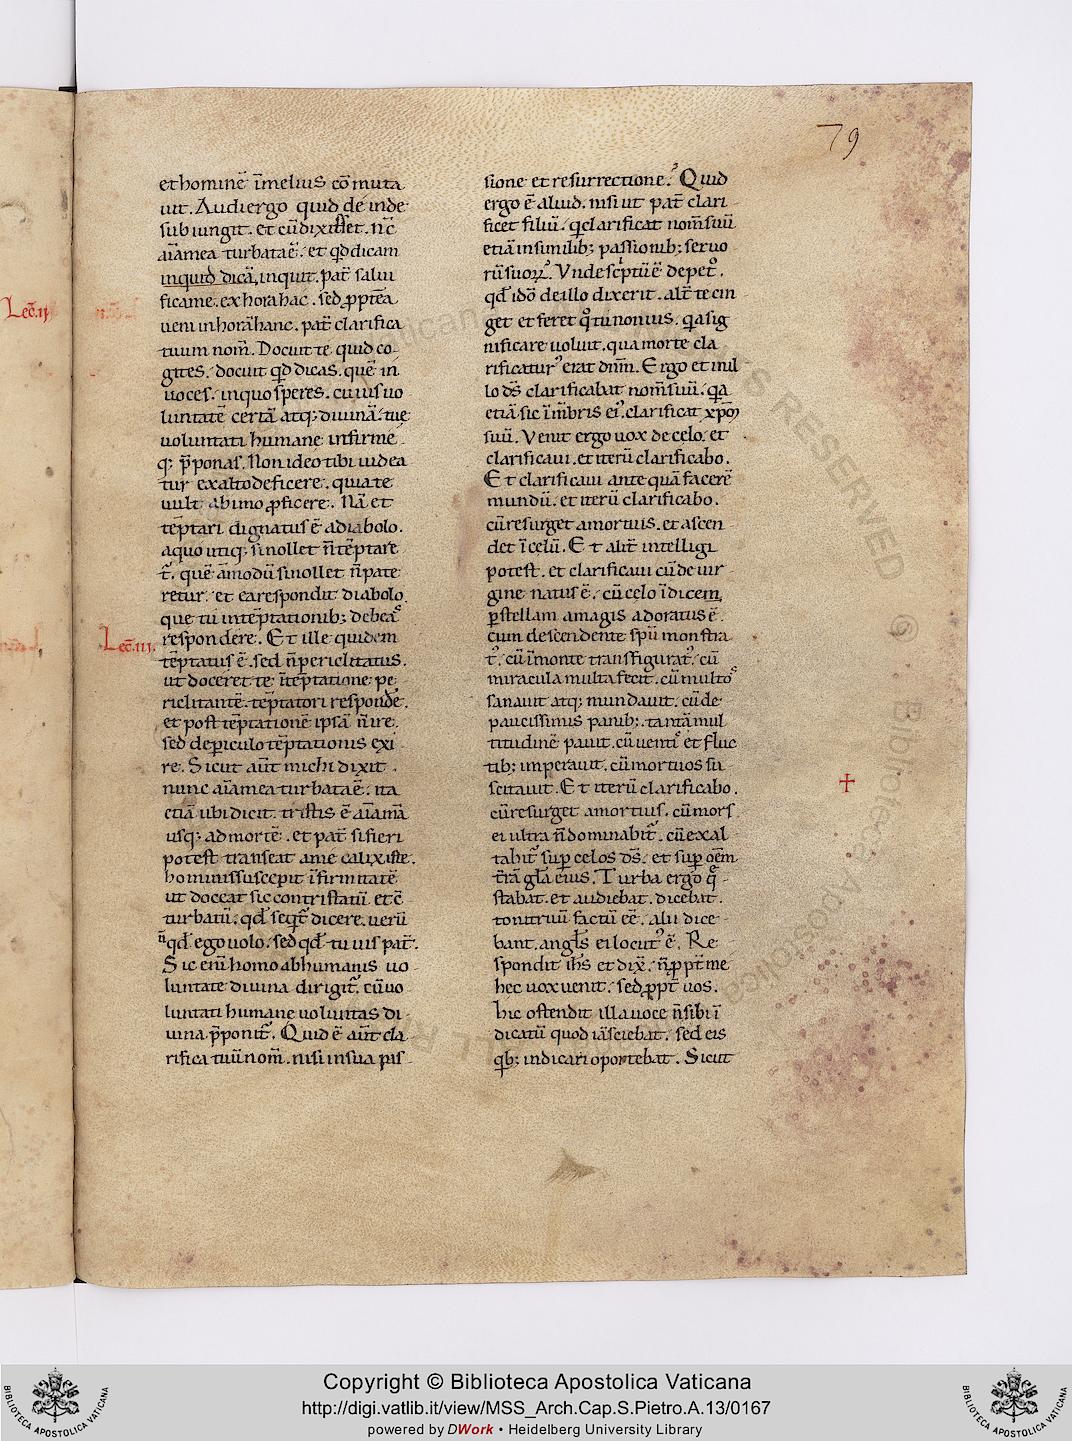 79
et hominē ī melius cōmuta
uit. Audi ergo quid de inde
subiungit. et cū dixisset. nc̄
aīa mea turbata ē. et qd dicam
inquid dicā, inquit. pat̄ salui
fica me. ex hora hac. sed ꝓpt̄ea
Lec̄.ij
ueni in horā hanc. pat̄ clarifica
tuum nom̄. Docuit te quid co
gites. docuit qd dicas. quē in
uoces. in quo speres. cuius uo
luntatē certā atq; diuinā. tue
uoluntati humane infirme
q; p̄ponas. Non ideo tibi uidea
tur ex alto deficere. quia te
uult ab imo ꝓficere. Nā et
tēptari dignatus ē a diabolo.
a quo utiq; si nollet n̄ tēptare
t̄. quē ammodū si nollet n̄ pate
retur. et ea respondit diabolo.
que tu in tēptationib; debeas
Lec̄.iij.
respondere. Et ille quidem
tēptatus ē. sed n̄ periclitatus.
ut doceret te ī tēptatione pe
riclitantē. tēptatori respondē.
et post tēptationē ipsā n̄ ire.
sed de periculo tēptationis exi
re. Sicut aūt michi dixit.
nunc aīa mea turbata ē. ita
etiā ubi dicit. tristis ē aīa m̄a
usq; ad mortē. et pat̄ si fieri
potest transeat a me calix iste.
hominis suscepit īfirmitatē
ut doceat sic contristatū et c̄
turbatū. qd seqt̄ dicere. uerū
n̄ qd ego uolo. sed qd tu uis pat̄.
Sic enī homo ab humanis uo
luntate diuina dirigit̄. cū uo
luntati humane uoluntas di
uina p̄ponit̄. Quid ē aūt cla
rifica tuū nom̄. nisi in sua pas
sione et resurrectione. Quid
ergo ē aliud. nisi ut pat̄ clari
ficet filiū. q clarificat nom̄ suū
etiā in similib; passionib; seruo
rū suoꝝ. Vnde scptū ē de pet°.
qd idō de illo dixerit. alt̄ te cin
get et feret q° tu non uis. qa sig
nificare uoluit. qua morte cla
rificatur' erat dnm̄. Ergo et in il
lo ds̄ clarificabat nom̄ suū. qa
etiā sic īm̄bris ei' clarificat xpm
suū. Venit ergo uox de celo. et
clarificaui. et iterū clarificabo.
Et clarificaui ante quā facerē
mundū. et iterū clarificabo.
cū resurget a mortuis. et ascen
det ī celū. Et alit̄ intelligi
potest. et clarificaui cū de uir
gine natus ē. cū celo īdicem
ꝑ stellam a magis adoratus ē.
cum descendente spū monstra
t'. cū ī monte transfigurat'. cū
miracula multa fecit. cū multos
sanauit atq; mundauit. cū de
paucissimis panib; tantā mul
titudinē pauit. cū uentis et fluc
tib; imperauit. cū mortuos su
scitauit. Et iterū clarificabo.
✝
cū resurget a mortuis. cū mors
ei ultra n̄ dominabit̄. cū exal
tabit̄ sup celos ds̄. et sup oēm
t̄rā gla eius. Turba ergo q
stabat. et audiebat. dicebat.
tonitruū factū eē. alii dice
bant. angls̄ ei locut' ē. Re
spondit ihs̄ et dix̄. n̄ ꝓpt̄ me
hec uox uenit. sed ꝓpt̄ uos.
hic ostendit illa uoce n̄ sibi ī
dicatū quod iā sciebat. sed eis
qb; indicari oportebat. Sicut
Copyright © Biblioteca Apostolica Vaticana
http://digi.vatlib.it/view/MSS_Arch.Cap.S.Pietro.A.13/0167
powered by DWork • Heidelberg University Library
BIBLIOTECA APOSTOLICA VATICANA
BIBLIOTECA APOSTOLICA VATICANA